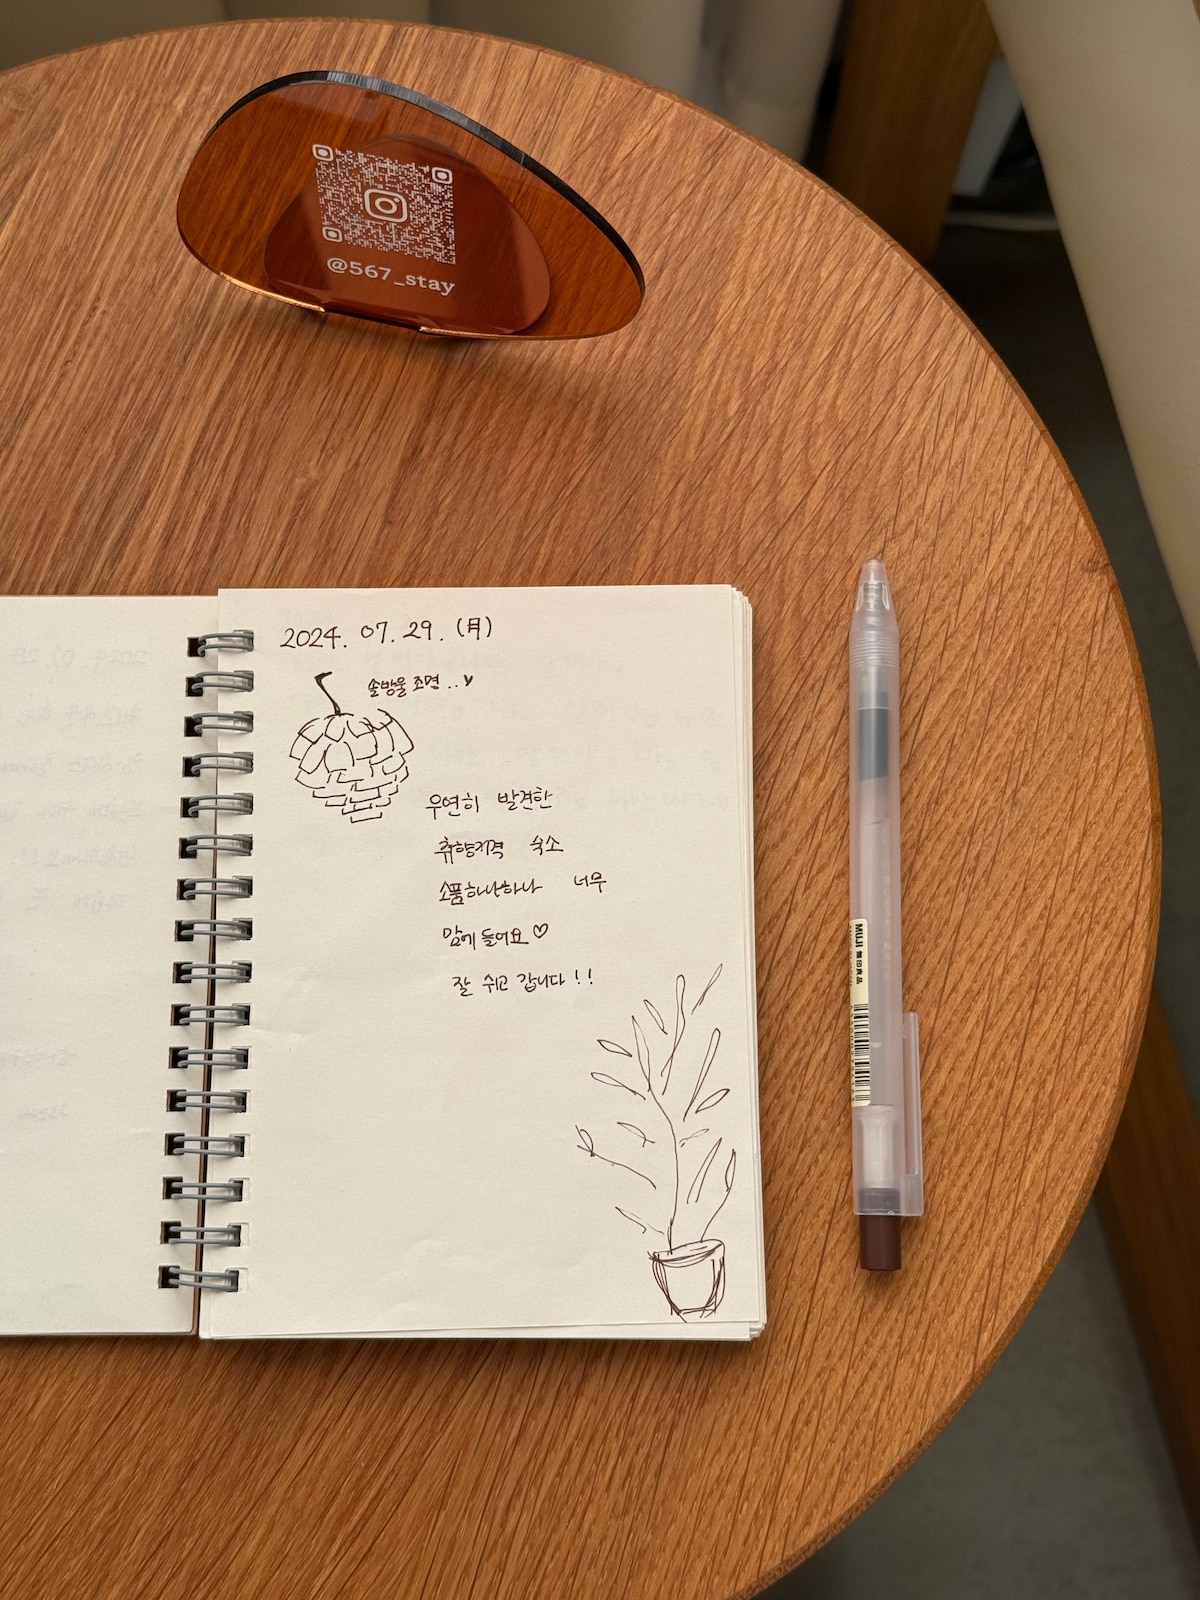 @567_stay
2024. 07. 29. (月)
솔방울 조명..♥
우연히 발견한
취향저격 숙소
소품하나하나 너무
맘에 들어요♡
잘 쉬고 갑니다!!
MUJI 無印良品